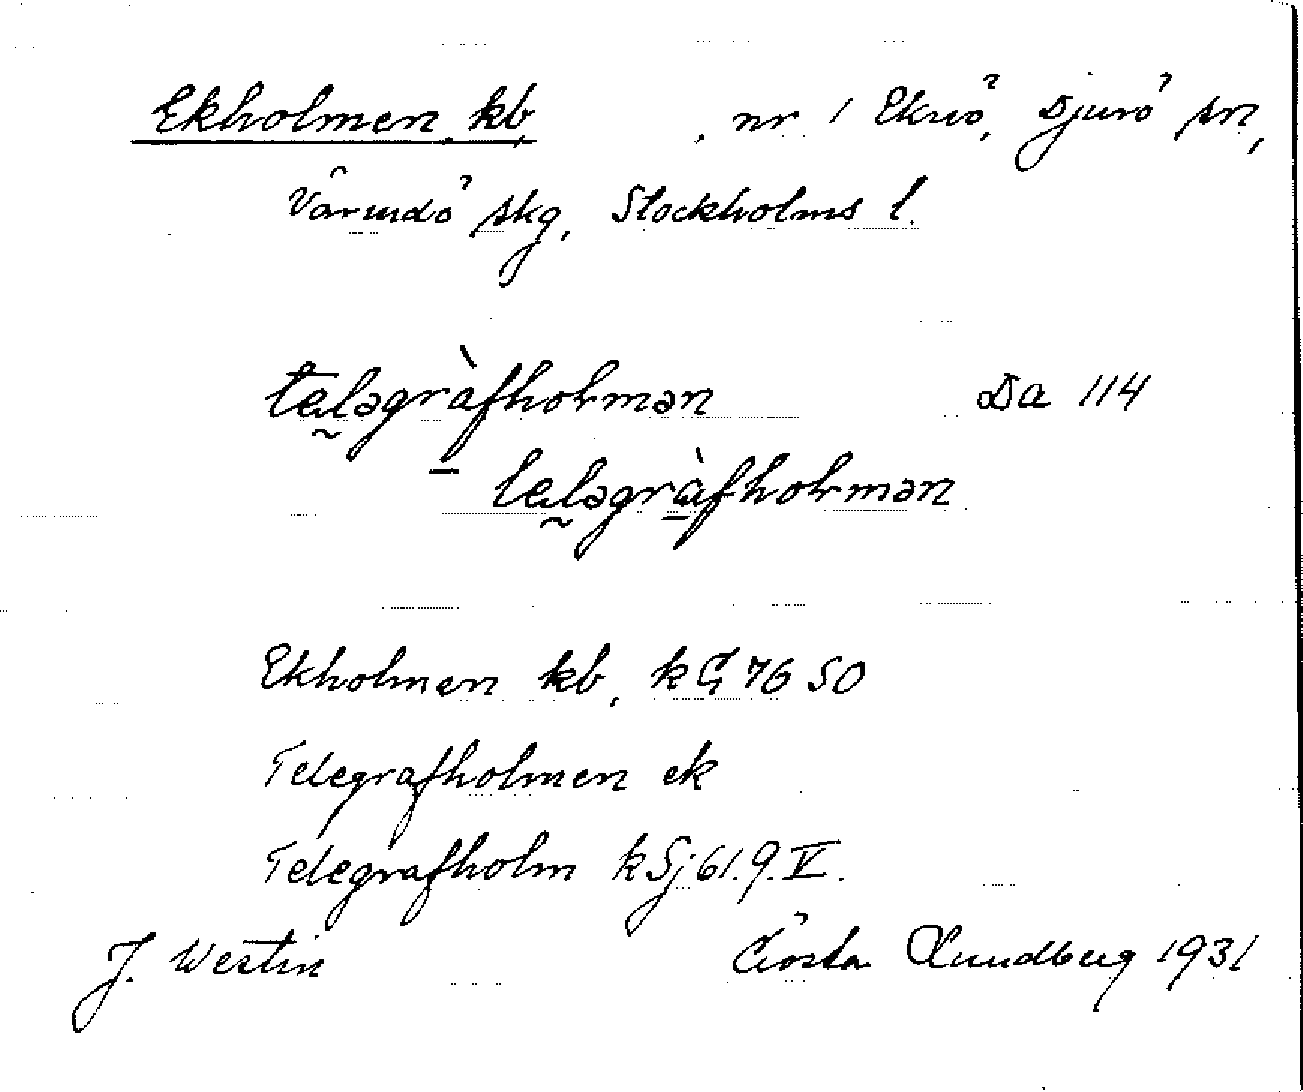 Ekholmen kb, nr 1 Eknö, Djurö sn,
Värmdö skg, Stockholms l.
teləgràfholmən Da 114
teləgràfholmən
Ekholmen kb, kG 76 SO
Telegrafholmen ek
Telegrafholm kSj 61. 9. V.
J. Westin Gösta Lundberg 1931